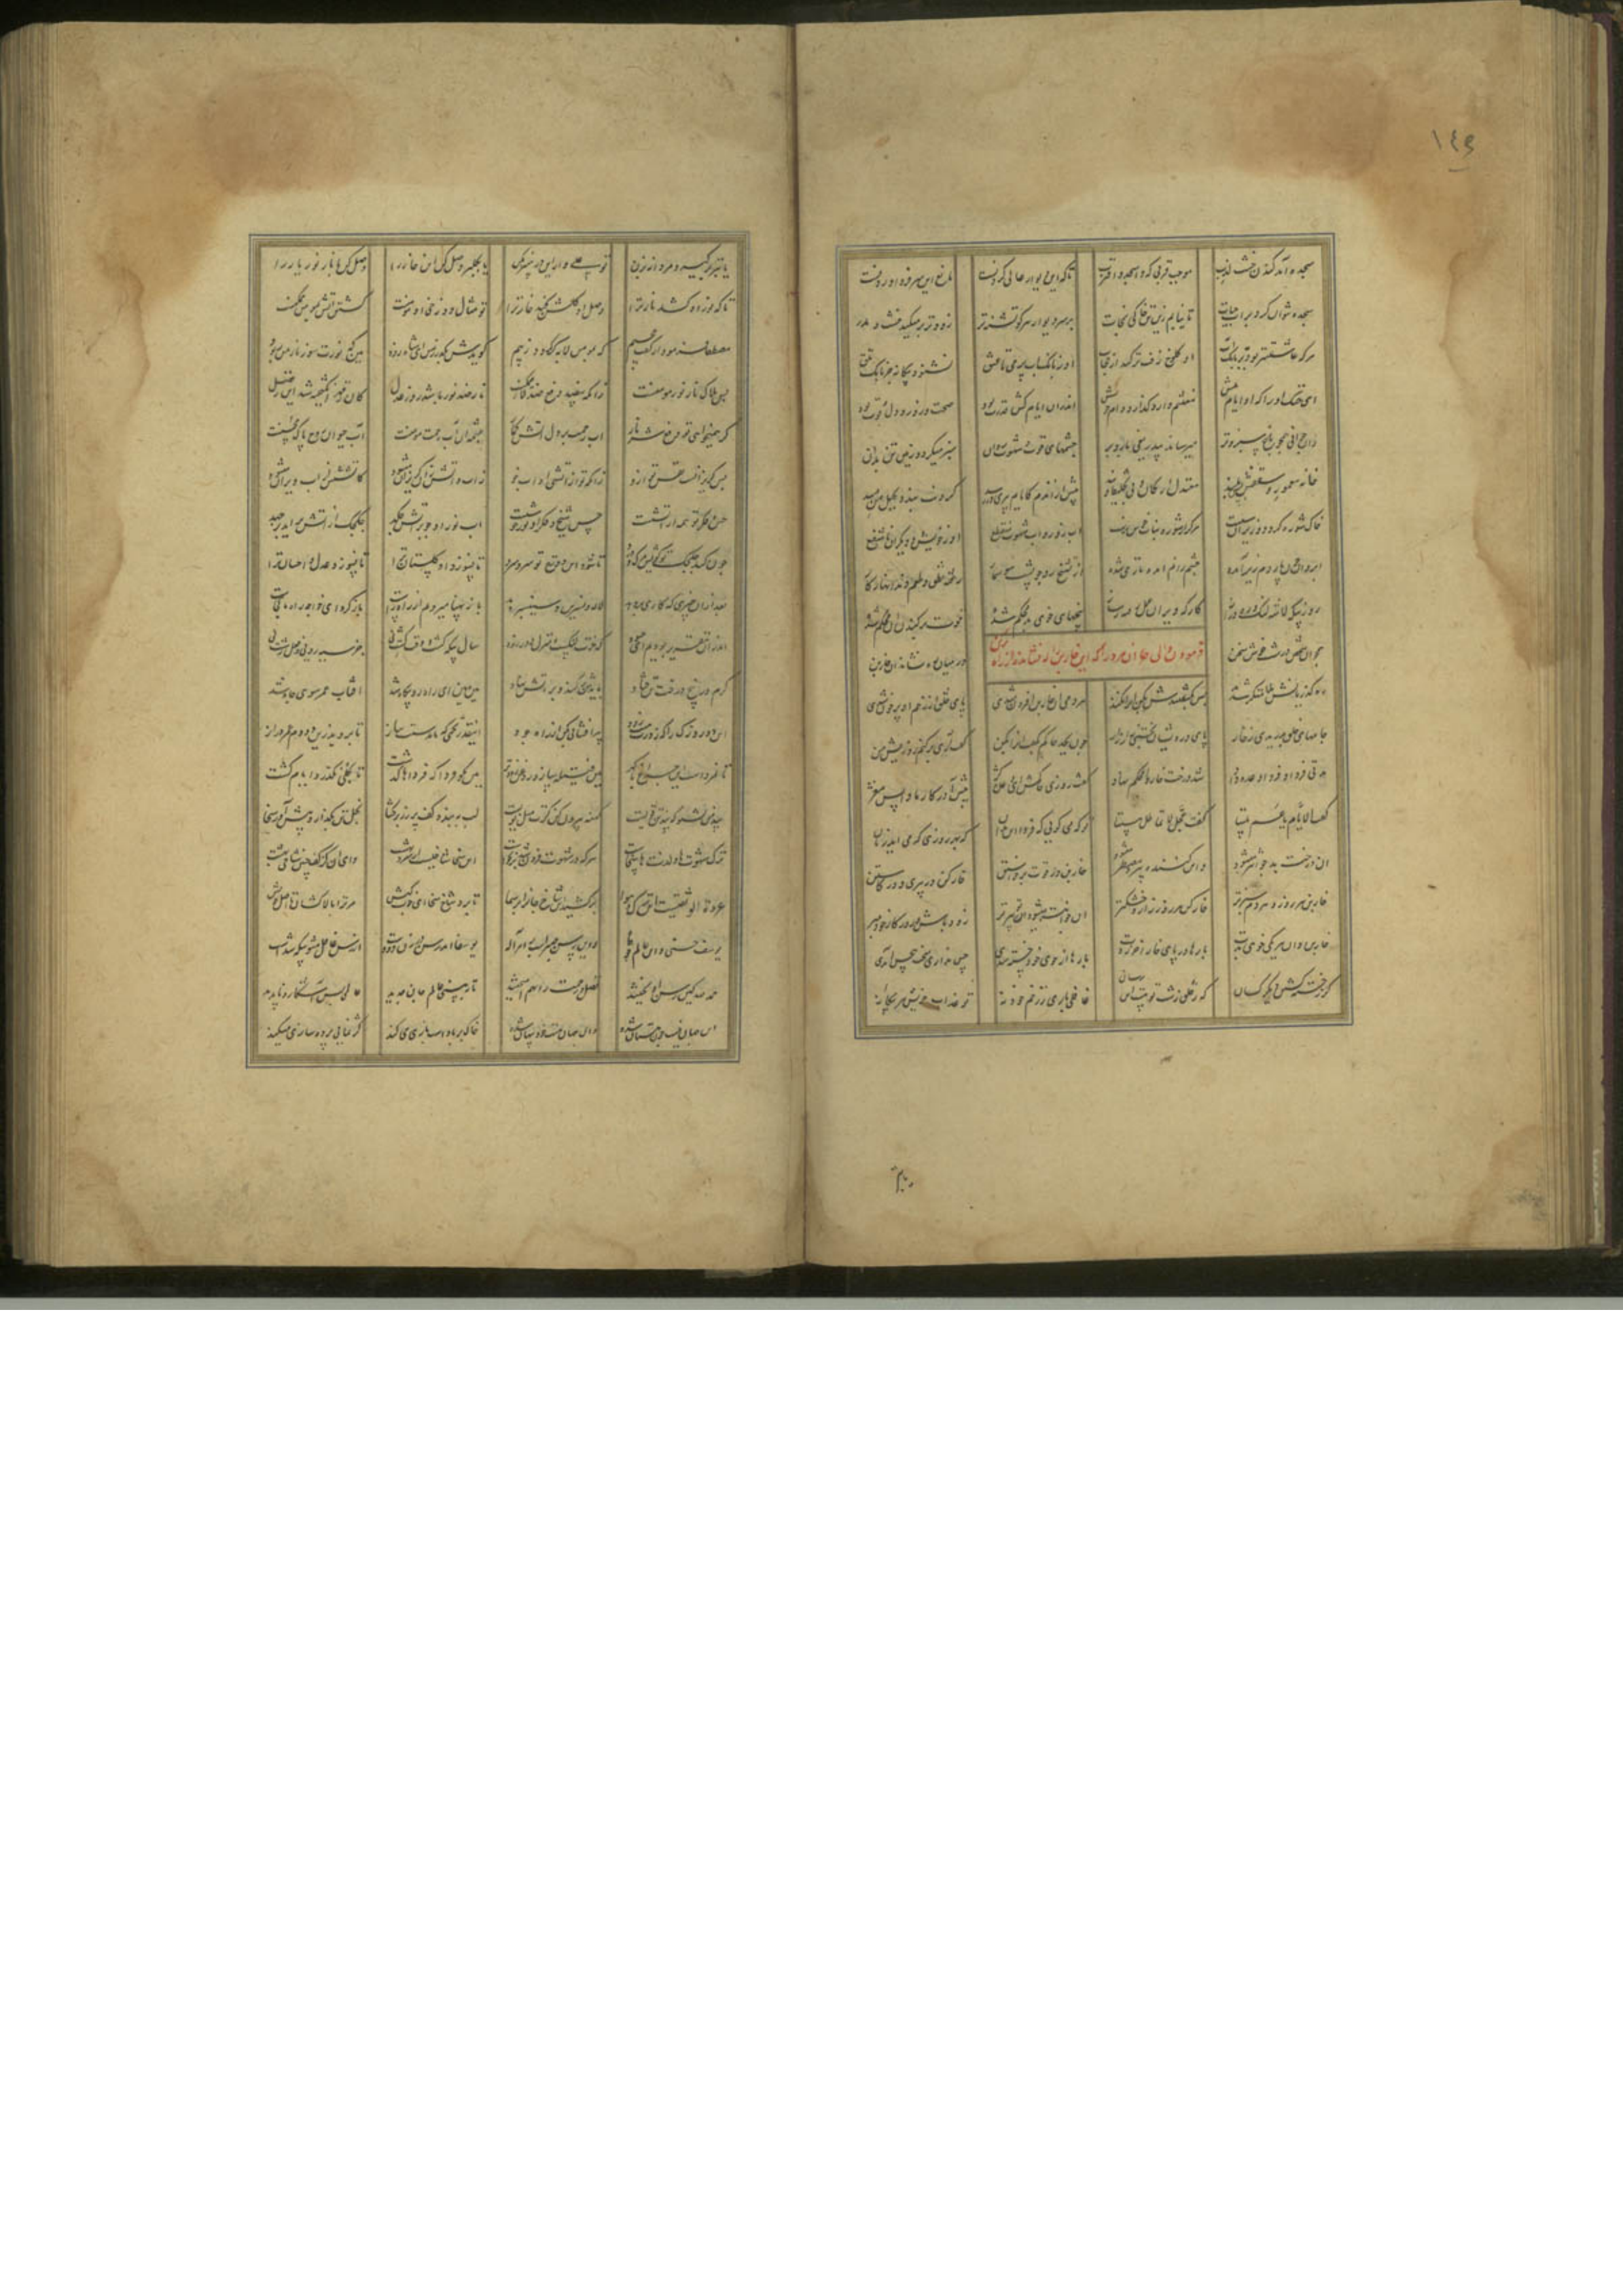 ١٤٩
سجده آمد کندن خشت لزب موجب قربی که واسجد واقترب تا که این دیوار عالی کردنست مانع این سر فرود آوردنست
سجده نتوان کرد بر آب حیات تا نیابم زین تن خاکی نجات بر سر دیوار هر کو تشنه تر زودتر بر میکند خشت و مدر
هر که عاشقتر بود بر بانک آب او کلوخ زفت تر کند از حجاب او ز بانک آب پر می تا عنق نشنود بیکانه جز بانک بلق
ای خنک اورا که او ایام پیش مغتنم دارد کذارد وام خویش اندران ایام کش قدرت بود صحت و زور و دل و قوت بود
وان جوانی همچو باغ سبز و تر میرساند بیدریغی بار و بر چشمهای قوت و شهوت روان سبز میکردد زمین تن بدان
خانه معمور و سقفش بس بلند معتدل ارکان و بی تخلیط و بند پیش ازان کایام پیری در رسد کردنت بندد بحبل من مسد
خاک شوره کردد و ریزان و سست هرکز از شوره نبات خوش نرست آب زور و آب شهوت منقطع او ز خویش و دیکران نا منتفع
ابروان چون پاردم زیر آمده چشم را نم آمده تاری شده از تشنج رو چو پشت سوسمار رفته نطق و طعم و دندانها ز کار
روز بیکه لاشه لنک و ره دراز کارکه ویران عمل رفته ز ساز بیخهای خوی بد محکم شده قوت برکندن آن کم شده
فرمودن والی آن مرد را که این خاربن را که نشانده از راه برکن
همچو آن شخص درشت خوش سخن در میان ره نشاند آن خاربن
ره کذریانش ملامتکر شدند بس بکفتندش بکن این را نکند هر دمی آن خاربن افزون شدی پای خلق از زخم او پر خون شدی
جامهای خلق بدریدی ز خار پای درویشان بخستی زار زار چون بجد حاکم بدو کفت این بکن کفت آری بر کنم روزیش من
مدتی فردا و فردا وعده داد شد درخت خار او محکم نهاد کفت روزی حاکمش ای وعده کژ پیش آ در کار ما واپس مغژ
کفت الایام یا عم بیننا کفت عجل لا تماطل دیننا تو که می کویی که فردا این بدان که بهر روزی که می آید زمان
آن درخت بد جوانتر میشود واین کننده پیر و مضطر میشود خاربن در قوت و برخاستن خارکن در پیری و در کاستن
خاربن هر روز و هر دم سبز تر خارکن هر روز زار و خشکتر او جوانتر میشود تو پیرتر زود باش و روزکار خود مبر
خاربن دان هر یکی خوی بدت بارها در پای خار آخر زدت بارها از خوی خود خسته شدی حس نداری سخت بی حس آمدی
کر ز خسته کشتن دیکر کسان که ز خلق زشت تو هست آن رسان غافلی باری ز زخم خود نه تو عذاب خویش و هر بیکانه
یا تبر
یا تبر برکیر و مردانه بزن تو علی وار این در خیبر بکن یا بکلبن وصل کن این خار را وصل کن با نار نور یار را
تا که نور او کشد نار ترا وصل او کلشن کند خار ترا تو مثال دوزخی او مومنست کشتن آتش بمومن ممکنست
مصطفی فرمود از کفت جحیم که بمومن لابه کر کردد ز بیم کویدش بکذر ز من ای شاه زود هین که نورت سوز نارم را ربود
پس هلاک نار نور مومنست زانکه بی ضد دفع ضد لا یمکنست نار ضد نور باشد روز عدل کان ز قهر انکیخته شد این ز فضل
کر همی خواهی تو دفع شر نار آب رحمت بر دل آتش کمار چشمه آن آب رحمت مومنست آب حیوان روح پاک محسنست
بس کریزانست نفس تو ازو زانکه تو از آتشی او آب جو ز آب آتش زان کریزان میشود کاتشش از آب ویران میشود
حس و فکر تو همه از آتشست حس شیخ و فکر او نور خوشست آب نور او چو بر آتش چکد چکچک از آتش برآید برجهد
چون کند چکچک تو کویش مرک و درد تا شود این دوزخ نفس تو سرد تا نسوزد او کلستان ترا تا نسوزد عدل و احسان ترا
بعد ازان چیزی که کاری بر دهد لاله و نسرین و سیسنبر دهد باز پهنا میرویم از راه راست باز کرد ای خواجه راه ما کجاست
اندر آن تقریر بودیم ای حسود که خرت لنکست و منزل دور زود سال بیکه کشت وقت کشت نی جز سیه رویی و فعل زشت نی
کرم در بیخ درخت تن فتاد بایدش برکند و بر آتش نهاد هین و هین ای راه رو بیکاه شد آفتاب عمر سوی چاه شد
این دو روزک را که زورت هست زود پیر افشانی بکن از راه جود اینقدر تخمی که ماندستت بباز تا بروید زین دو دم عمر دراز
تا نمردست این چراغ با کهر هین فتیلش ساز و روغن زودتر هین مکو فردا که فرداها کذشت تا بکلی نکذرد ایام کشت
پند من بشنو که تن بند قویست کهنه بیرون کن کرت میل نویست لب ببند و کف پر زر برکشا بخل تن بکذار و پیش آور سخا
ترک شهوتها و لذتها سخاست هر که در شهوت فرو شد برنخاست این سخا شاخیست از سرو بهشت وای آن کز کف چنین شاخی بهشت
عروة الوثقیست این ترک هوا برکشد این شاخ جانرا بر سما تا برد شاخ سخا ای خوب کیش مر ترا بالا کشان تا اصل خویش
یوسف حسنی و این عالم چو چاه وین رسن صبرست بر امر اله یوسفا آمد رسن در زن دو دست از رسن غافل مشو بیکه شدست
حمد لله کین رسن آویختند فضل و رحمت را بهم آمیختند تا ببینی عالم جان جدید عالم بس آشکار و ناپدید
این جهان نیست چون هستان شده وان جهان هست بس پنهان شده خاک بر بادست بازی می کند کژ نمایی پرده سازی میکند